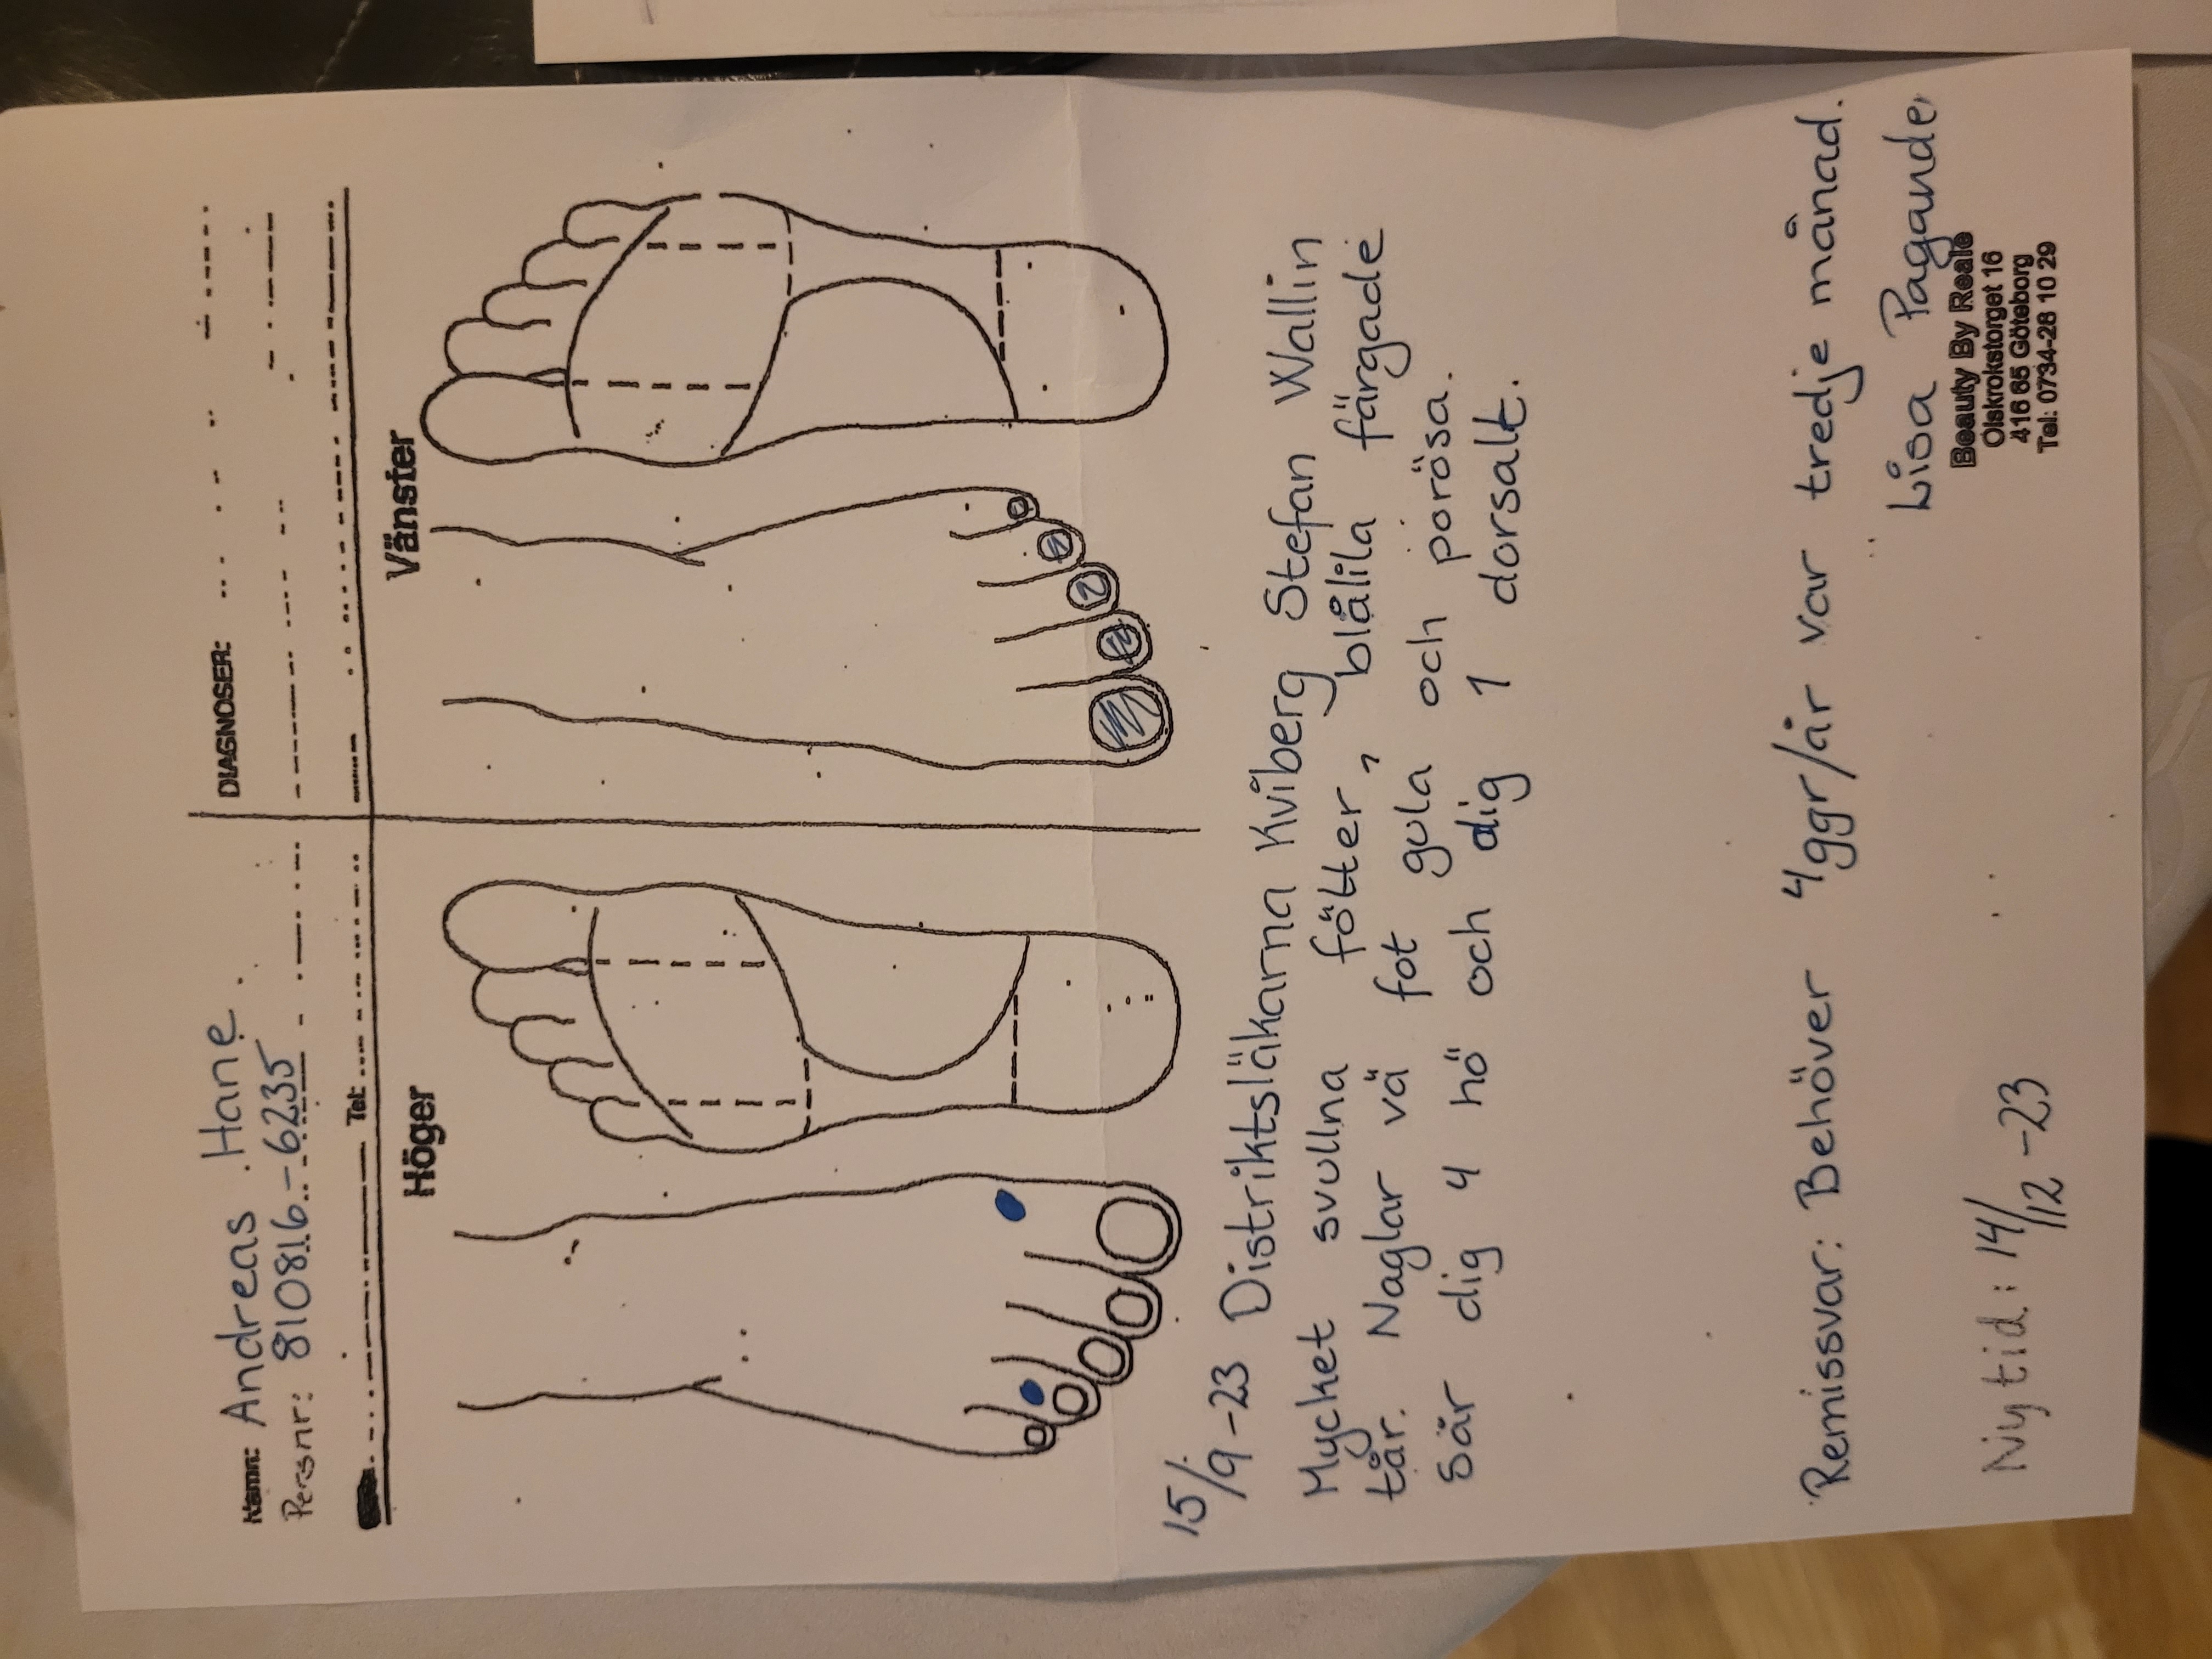 Namn: Andreas Hane
DIAGNOSER:
Persnr: 810816-6235
Tel:
Höger
Vänster
15/9-23 Distriktsläkarna Kviberg Stefan Wallin
Mycket svullna fötter, blålila färgade
tår. Naglar vä fot gula och porösa.
Sår dig 4 hö och dig 1 dorsalt.
Remissvar: Behöver 4ggr/år var tredje månad.
Lisa Pagander
Ny tid: 14/12-23
Beauty By Reale
Olskrokstorget 16
416 65 Göteborg
Tel: 0734-28 10 29